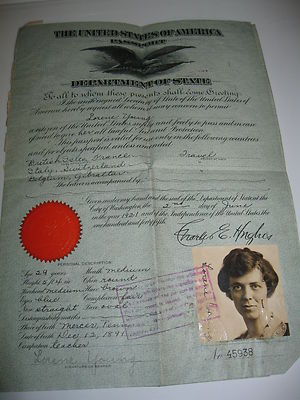 THE UNITED STATES OF AMERICA
PASSPORT
DEPARTMENT OF STATE
To all to whom these presents shall come Greeting:
I the undersigned Secretary of State of the United States of
America hereby request all whom it may concern to permit
Lorene Young
a citizen of the United States safely and freely to pass and in case
of need to give her all lawful Aid and Protection
This passport is valid for use only in the following countries
and for objects specified unless amended
British Isles France
Travel
Italy Switzerland
Belgium Gibraltar
The bearer is accompanied by
Given under my hand and the seal of the Department of State at the
City of Washington the 2nd day of June
in the year 1921 and of the Independence of the United States the
one hundred and forty fifth.
Charles E. Hughes
PERSONAL DESCRIPTION
Age 29 years Mouth medium
Height 5 ft 4 in Chin round
Forehead Medium Hair brown
Eyes blue Complexion fair
Nose straight Face oval
Distinguishing marks
Place of birth Mercer, Tenn
Date of birth Dec 12, 1891
Occupation teacher
Lorene Young
SIGNATURE OF BEARER
No 45938